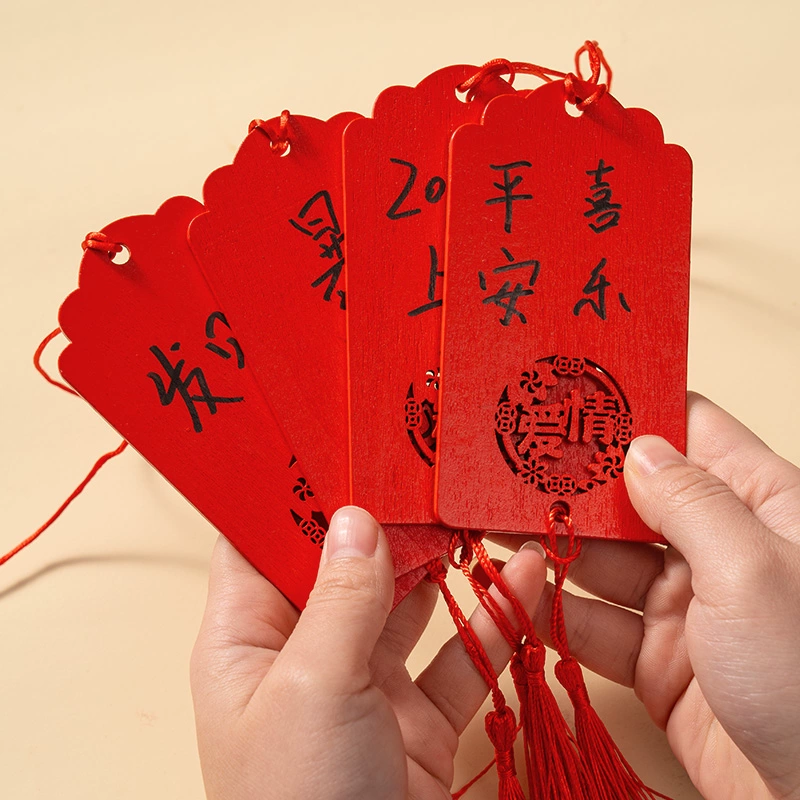 平安
喜乐
爱情
20
上
发